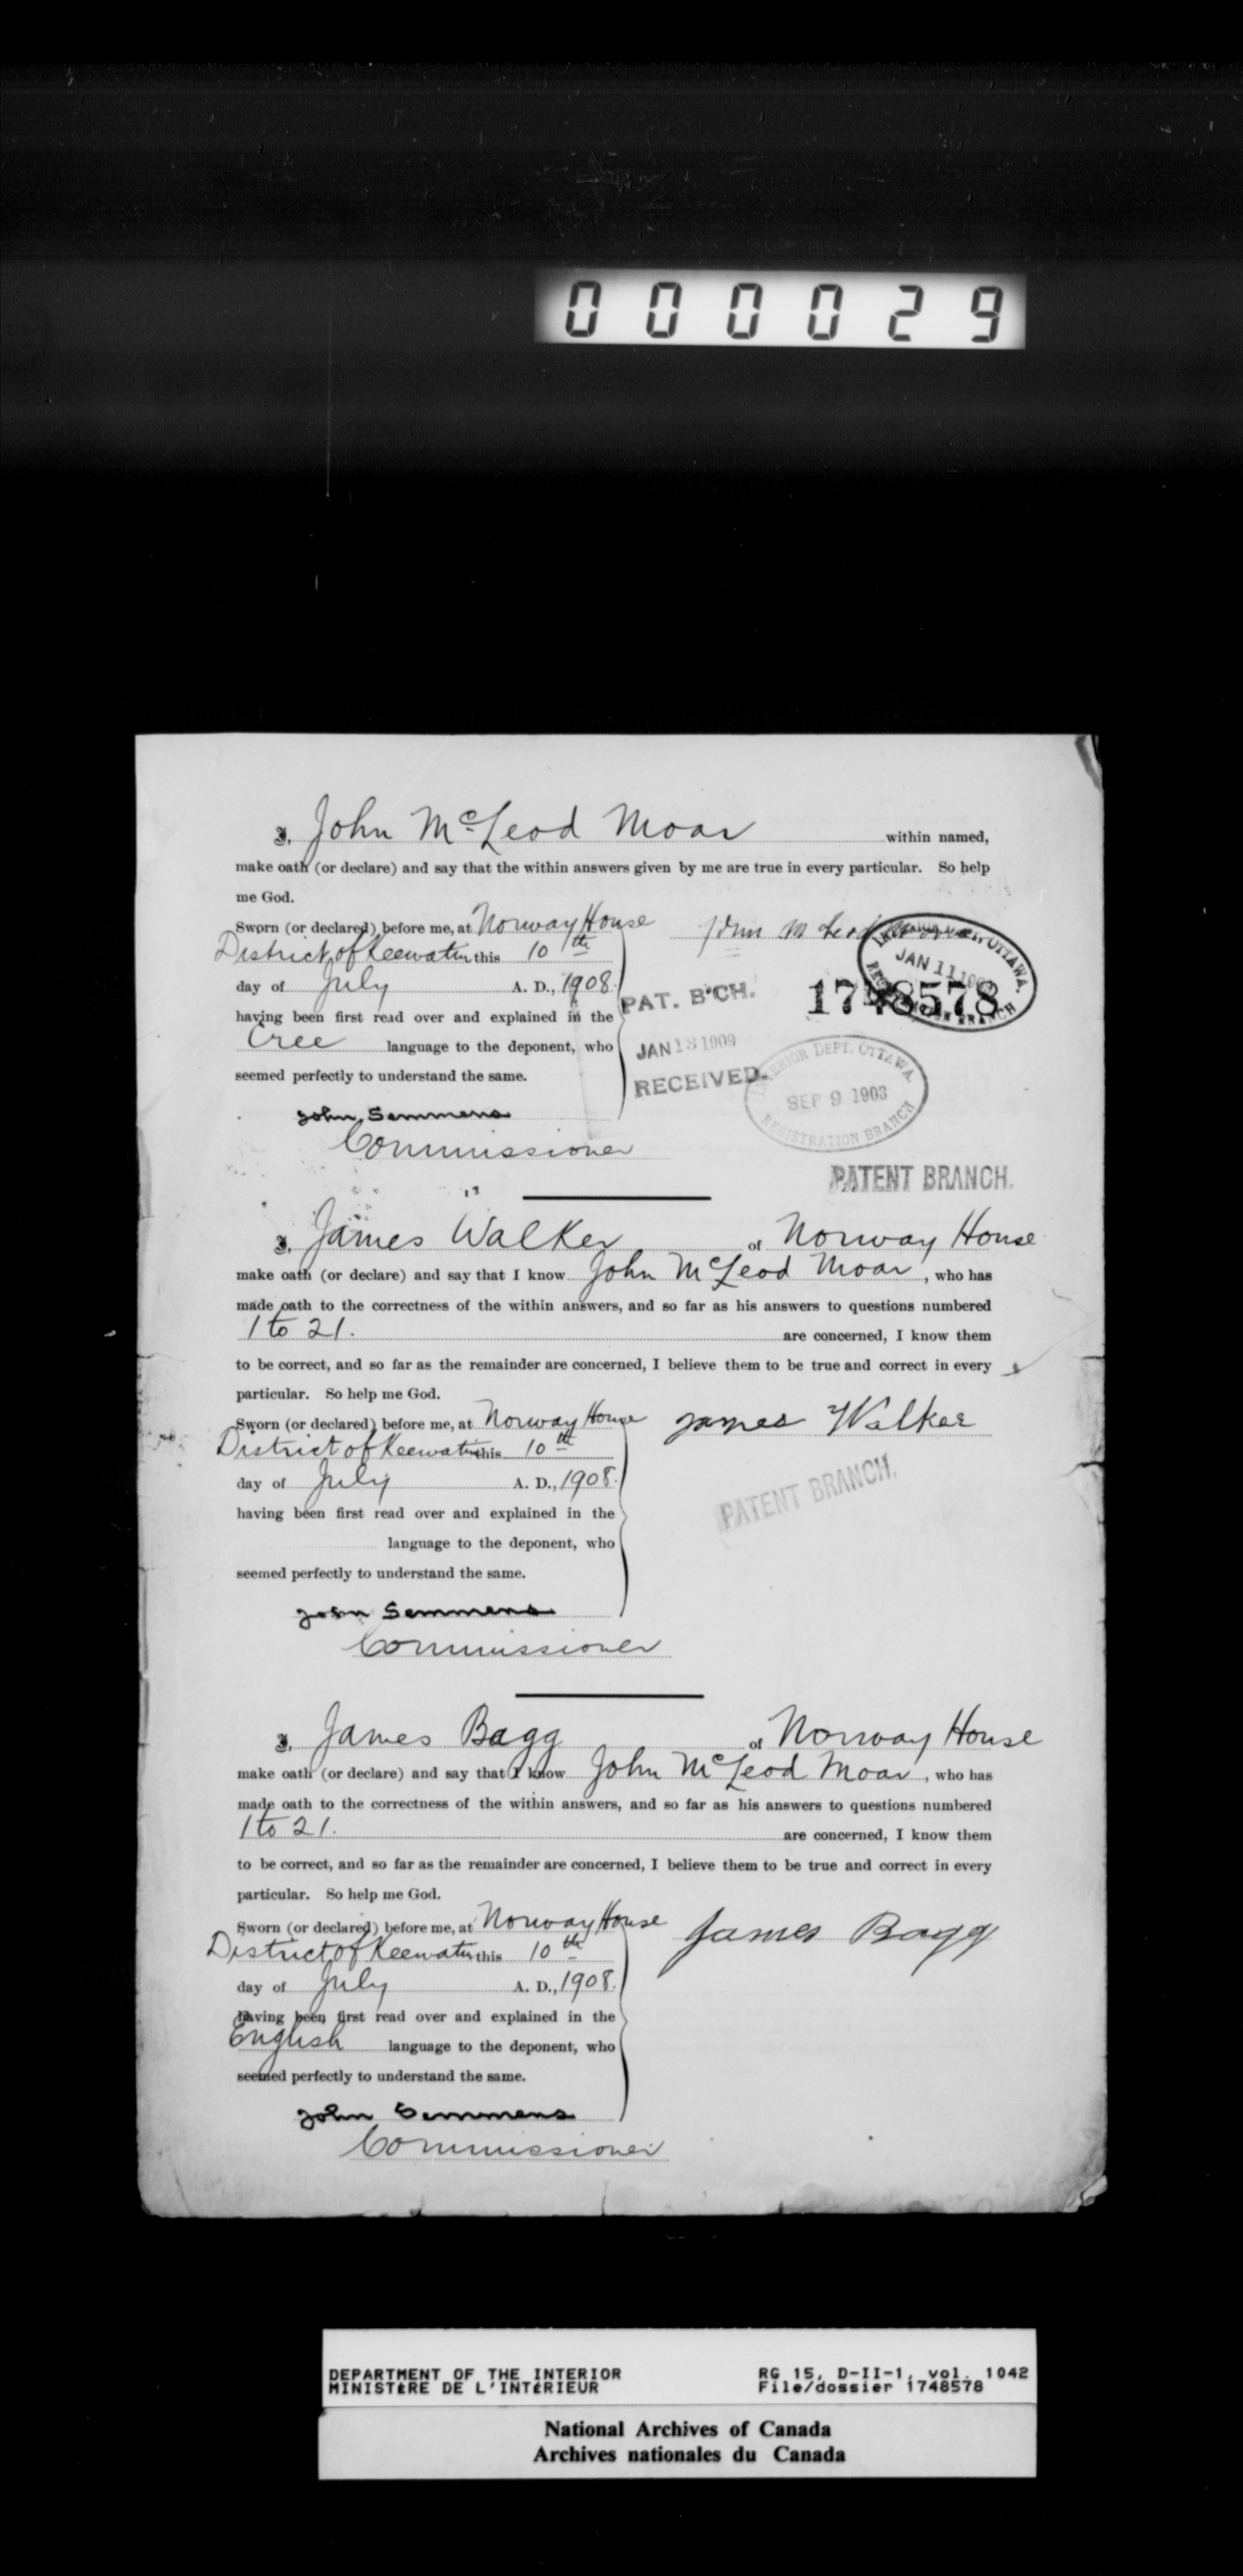 000029
I, John McLeod Moar within named,
make oath (or declare) and say that the within answers given by me are true in every particular. So help
me God.
Sworn (or declared) before me, at Norway House
District of Keewatin this 10th
day of July A. D., 1908.
having been first read over and explained in the
Cree language to the deponent, who
seemed perfectly to understand the same.
John Semmens
Commissioner
John McLeod
INTERIOR DEPT. OTTAWA.
JAN 11
REGISTRATION BRANCH
1748578
PAT. B'CH.
JAN 13 1909
RECEIVED.
INTERIOR DEPT. OTTAWA.
SEP 9 1903
REGISTRATION BRANCH
PATENT BRANCH.
I, James Walker of Norway House
make oath (or declare) and say that I know John McLeod Moar, who has
made oath to the correctness of the within answers, and so far as his answers to questions numbered
1 to 21. are concerned, I know them
to be correct, and so far as the remainder are concerned, I believe them to be true and correct in every
particular. So help me God.
Sworn (or declared) before me, at Norway House
District of Keewatin this 10th
day of July A. D., 1908.
having been first read over and explained in the
language to the deponent, who
seemed perfectly to understand the same.
John Semmens
Commissioner
James Walker
PATENT BRANCH.
I, James Bagg of Norway House
make oath (or declare) and say that I know John McLeod Moar, who has
made oath to the correctness of the within answers, and so far as his answers to questions numbered
1 to 21. are concerned, I know them
to be correct, and so far as the remainder are concerned, I believe them to be true and correct in every
particular. So help me God.
Sworn (or declared) before me, at Norway House
District of Keewatin this 10th
day of July A. D., 1908.
having been first read over and explained in the
English language to the deponent, who
seemed perfectly to understand the same.
John Semmens
Commissioner
James Bagg
DEPARTMENT OF THE INTERIOR
MINISTÈRE DE L'INTÉRIEUR
RG 15, D-II-1, vol. 1042
File/dossier 1748578
National Archives of Canada
Archives nationales du Canada